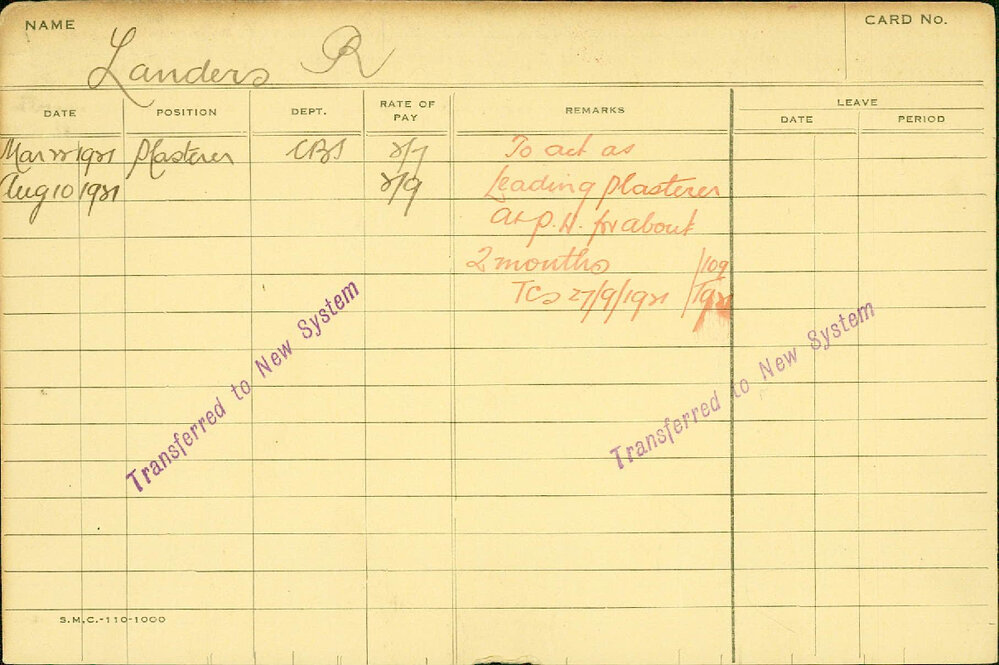 NAME
CARD NO.
Landers R
DATE POSITION DEPT. RATE OF PAY REMARKS LEAVE
DATE PERIOD
Mar 22 1921 Plasterer CBS 2/7 To act as
Aug 10 1921 2/9 Leading Plasterer
at P.H. for about
2 months /109
TCs 27/9/1921 /1921
Transferred to New System
Transferred to New System
S.M.C.-110-1000